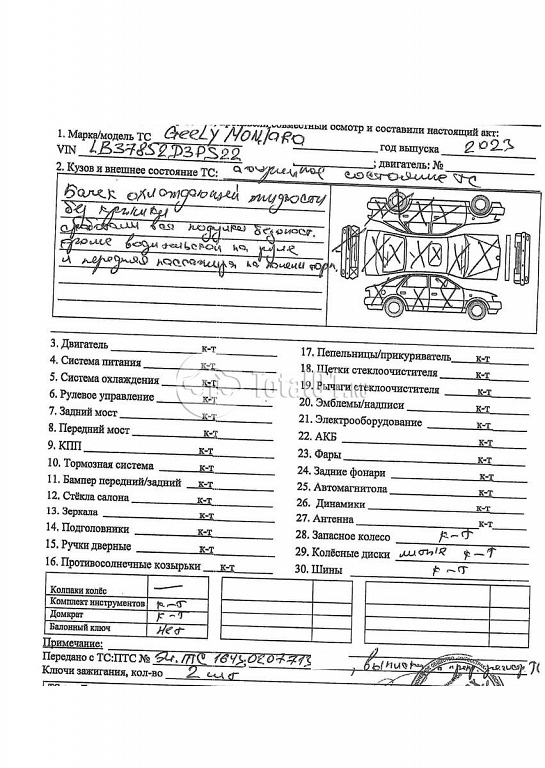 совместный осмотр и составили настоящий акт:
1. Марка/модель ТС Geely MONJARO
год выпуска 2023
VIN LB37852D3PS22
2. Кузов и внешнее состояние ТС: аварийное состояние ТС
; двигатель: №
Бачек охлаждающей жидкости
без крышки
сработали все подушки безопасн.
кроме водительской на руле
и передней пассажира на панели торп.
3. Двигатель к-т
4. Система питания к-т
5. Система охлаждения к-т
6. Рулевое управление к-т
7. Задний мост к-т
8. Передний мост к-т
9. КПП к-т
10. Тормозная система к-т
11. Бампер передний/задний к-т
12. Стёкла салона к-т
13. Зеркала к-т
14. Подголовники к-т
15. Ручки дверные к-т
16. Противосолнечные козырьки к-т
17. Пепельницы/прикуриватель к-т
18. Щетки стеклоочистителя к-т
19. Рычаги стеклоочистителя к-т
20. Эмблемы/надписи к-т
21. Электрооборудование к-т
22. АКБ к-т
23. Фары к-т
24. Задние фонари к-т
25. Автомагнитола к-т
26. Динамики к-т
27. Антенна к-т
28. Запасное колесо к-т
29. Колёсные диски литые к-т
30. Шины к-т
Total01.ru
Колпаки колёс —
Комплект инструментов к-т
Домкрат к-т
Балонный ключ нет
Примечание:
Передано с ТС:ПТС № Эл. ПТС 1643 0207713, выписка
Ключи зажигания, кол-во 2 шт